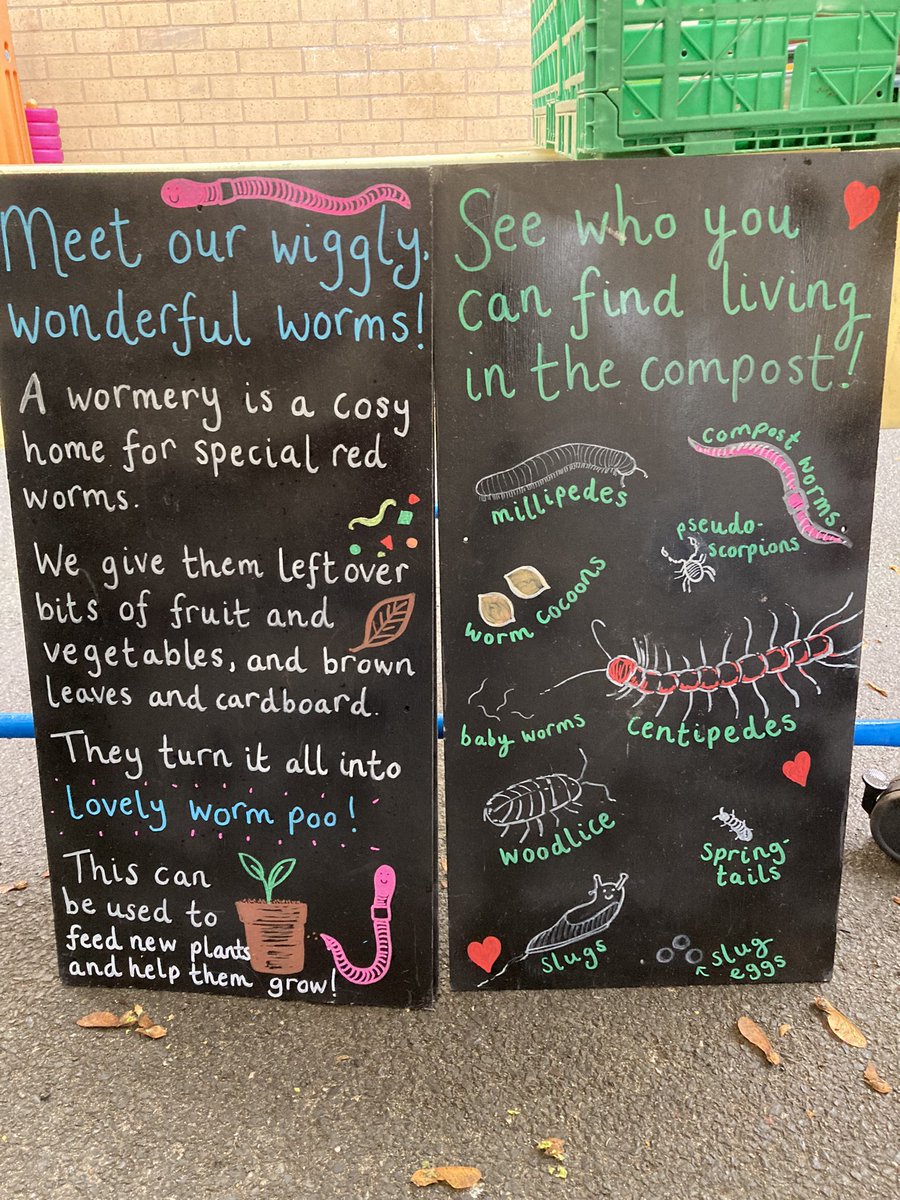 Meet our wiggly,
wonderful worms!
A wormery is a cosy
home for special red
worms.
We give them leftover
bits of fruit and
vegetables, and brown
leaves and cardboard.
They turn it all into
lovely worm poo!
This can
be used to
feed new plants
and help them grow!
See who you
can find living
in the compost!
millipedes
compost worms
pseudo-
scorpions
worm cocoons
baby worms
centipedes
woodlice
spring-
tails
slugs
slug
eggs